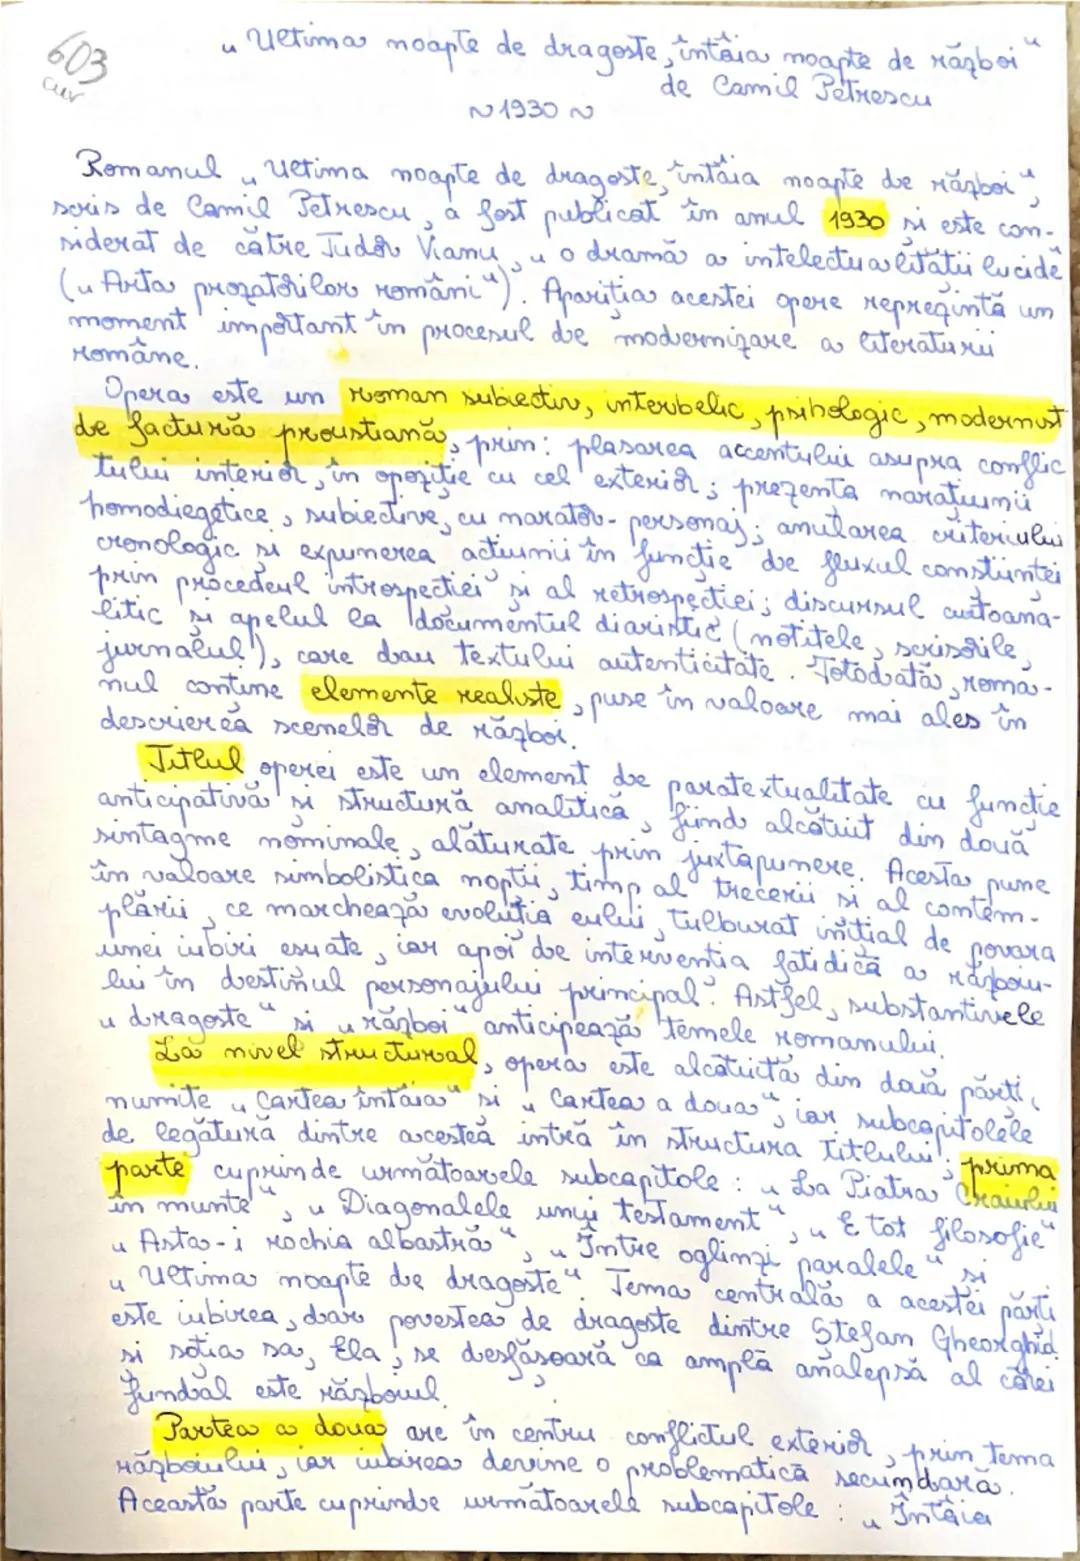 603
cuv
„Ultima noapte de dragoste, întâia noapte de război"
de Camil Petrescu
~1930~
Romanul „Ultima noapte de dragoste, întâia noapte de război",
scris de Camil Petrescu, a fost publicat în anul 1930 și este con-
siderat de către Tudor Vianu, „o dramă a intelectualității lucide"
(„Arta prozatorilor români"). Apariția acestei opere reprezintă un
moment important în procesul de modernizare a literaturii
române.
Opera este un roman subiectiv, interbelic, psihologic, modernist
de factură proustiană, prin: plasarea accentului asupra conflic
tului interior, în opoziție cu cel exterior; prezența narațiunii
homodiegetice, subiective, cu narator-personaj; anularea criteriului
cronologic și expunerea acțiunii în funcție de fluxul conștiinței
prin procedeul introspecției și al retrospecției; discursul autoana-
litic și apelul la documentul diaristic (notițele, scrisorile,
jurnalul), care dau textului autenticitate. Totodată, roma-
nul conține elemente realiste, puse în valoare mai ales în
descrierea scenelor de război.
Titlul operei este un element de paratextualitate cu funcție
anticipativă și structură analitică, fiind alcătuit din două
sintagme nominale, alăturate prin juxtapunere. Acesta pune
în valoare simbolistica nopții, timp al trecerii și al contem-
plării, ce marchează evoluția eului, tulburat inițial de povara
unei iubiri eșuate, iar apoi de intervenția fatidică a războiu-
lui în destinul personajului principal. Astfel, substantivele
„dragoste" și „război" anticipează temele romanului.
La nivel structural, opera este alcătuită din două părți,
numite „Cartea întâia" și „Cartea a doua", iar subcapitolele
de legătură dintre acestea intră în structura titlului; prima
parte cuprinde următoarele subcapitole: „La Piatra Craiului
în munte", „Diagonalele unui testament", „E tot filosofie"
„Asta-i rochia albastră", „Între oglinzi paralele" și
„Ultima noapte de dragoste". Tema centrală a acestei părți
este iubirea, dar povestea de dragoste dintre Ștefan Gheorghid.
și soția sa, Ela, se desfășoară ca amplă analepsă al cărei
fundal este războiul.
Partea a doua are în centru conflictul exterior, prin tema
războiului, iar iubirea devine o problematică secundară.
Această parte cuprinde următoarele subcapitole: „Întâia